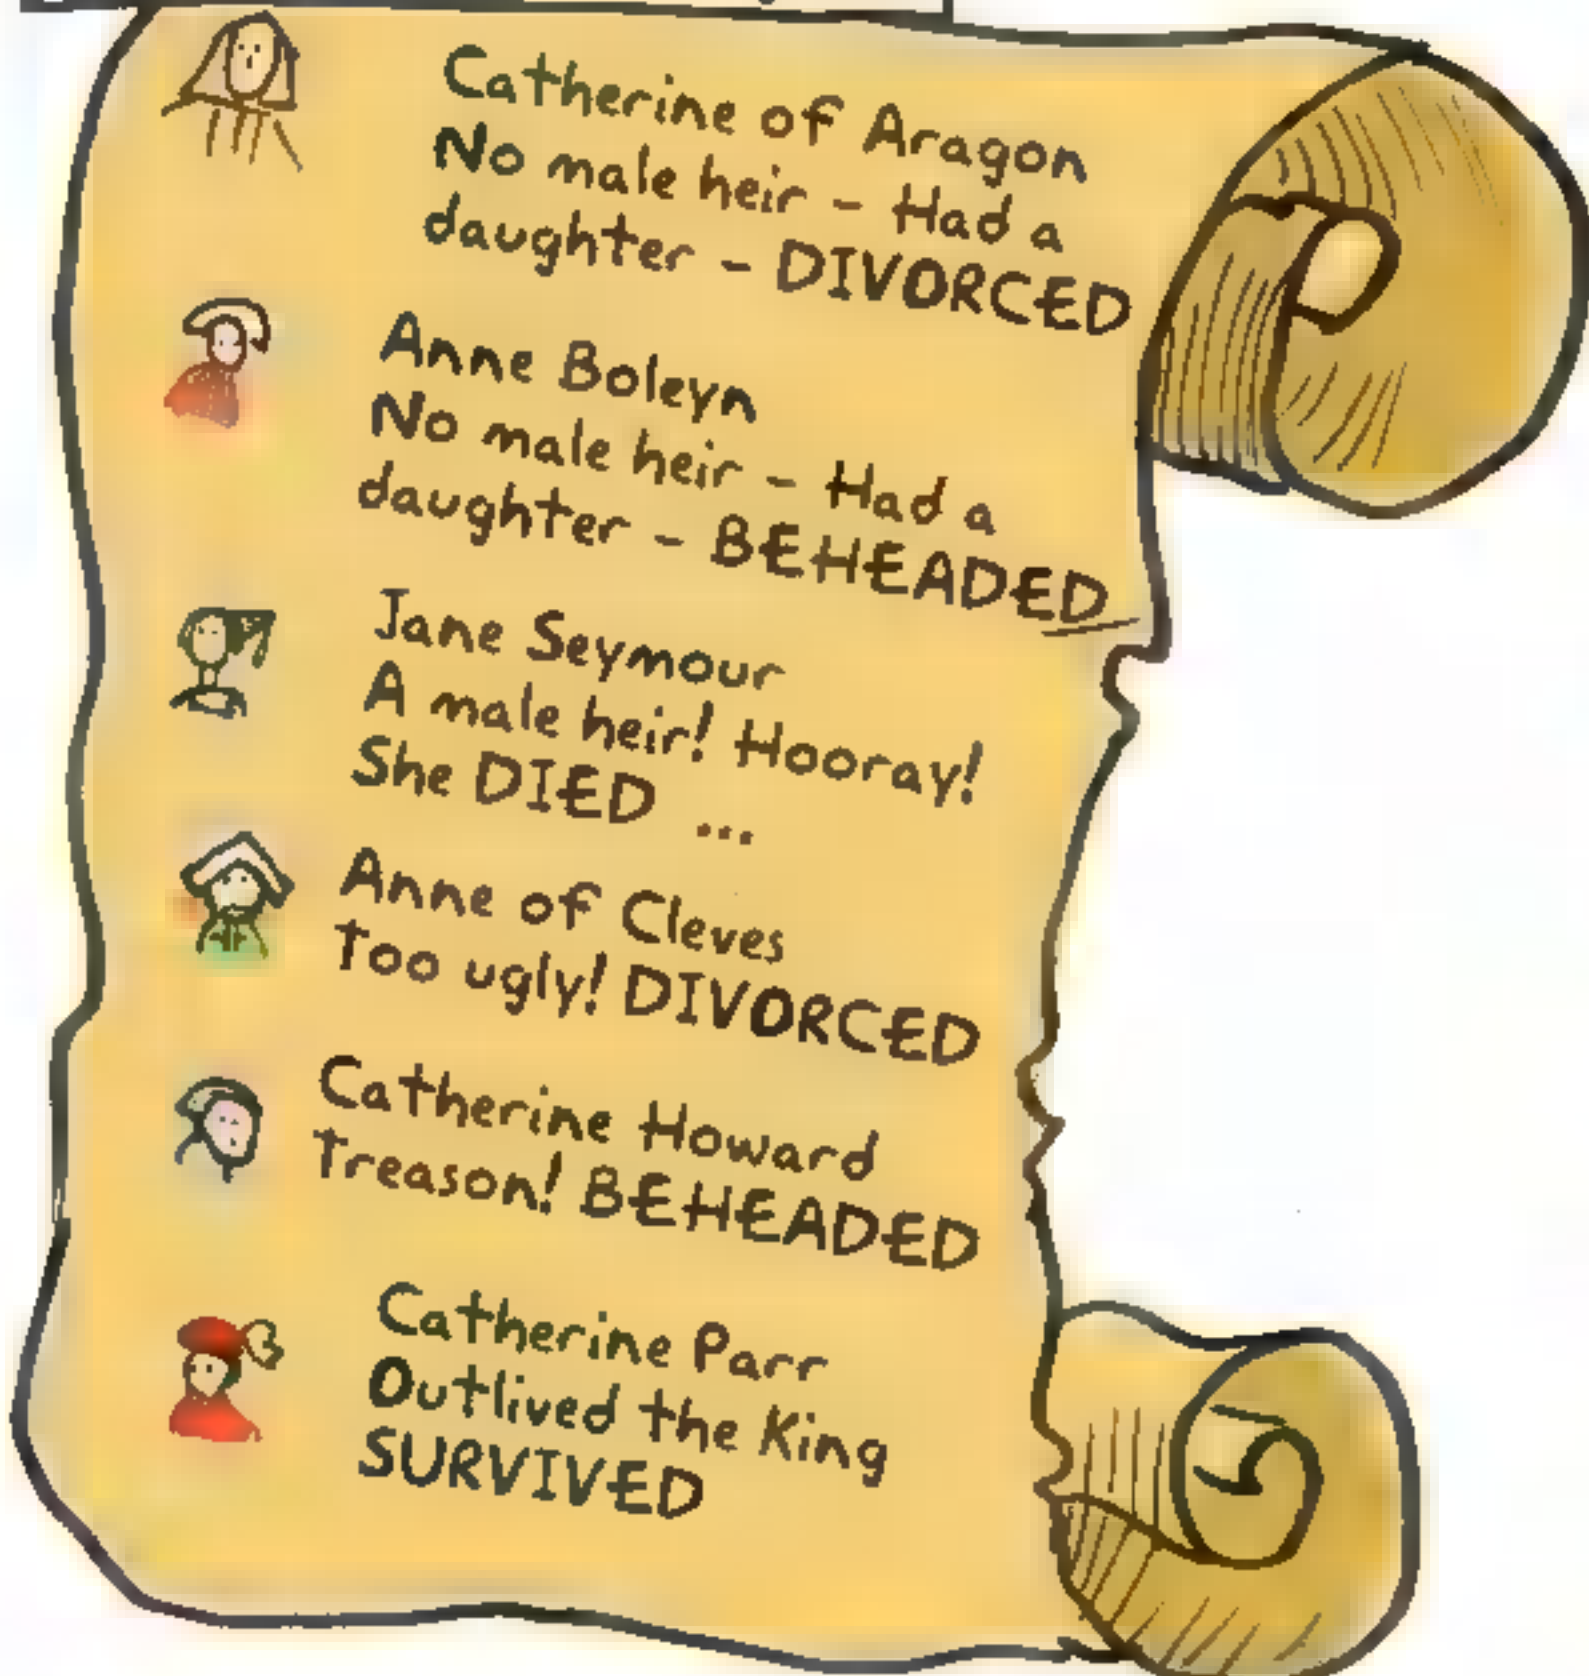 Catherine of Aragon
No male heir - Had a
daughter - DIVORCED
Anne Boleyn
No male heir - Had a
daughter - BEHEADED
Jane Seymour
A male heir! Hooray!
She DIED ...
Anne of Cleves
Too ugly! DIVORCED
Catherine Howard
Treason! BEHEADED
Catherine Parr
Outlived the King
SURVIVED